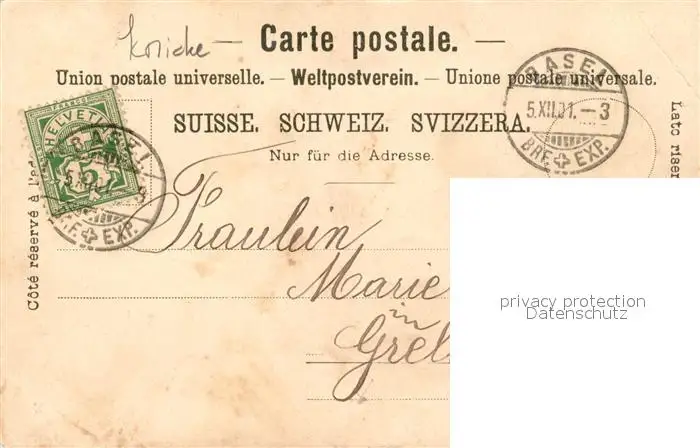 Carte postale.
Union postale universelle. — Weltpostverein. — Unione postale universale.
SUISSE. SCHWEIZ. SVIZZERA.
Nur für die Adresse.
FRANCO
HELVETIA
5
BASEL
BRF. EXP.
BASEL
5.XII.01. – 3
BRF EXP.
Côté réservé à l'ad
Lato riser
Fraulein
Marie
in
Grel
privacy protection
Datenschutz